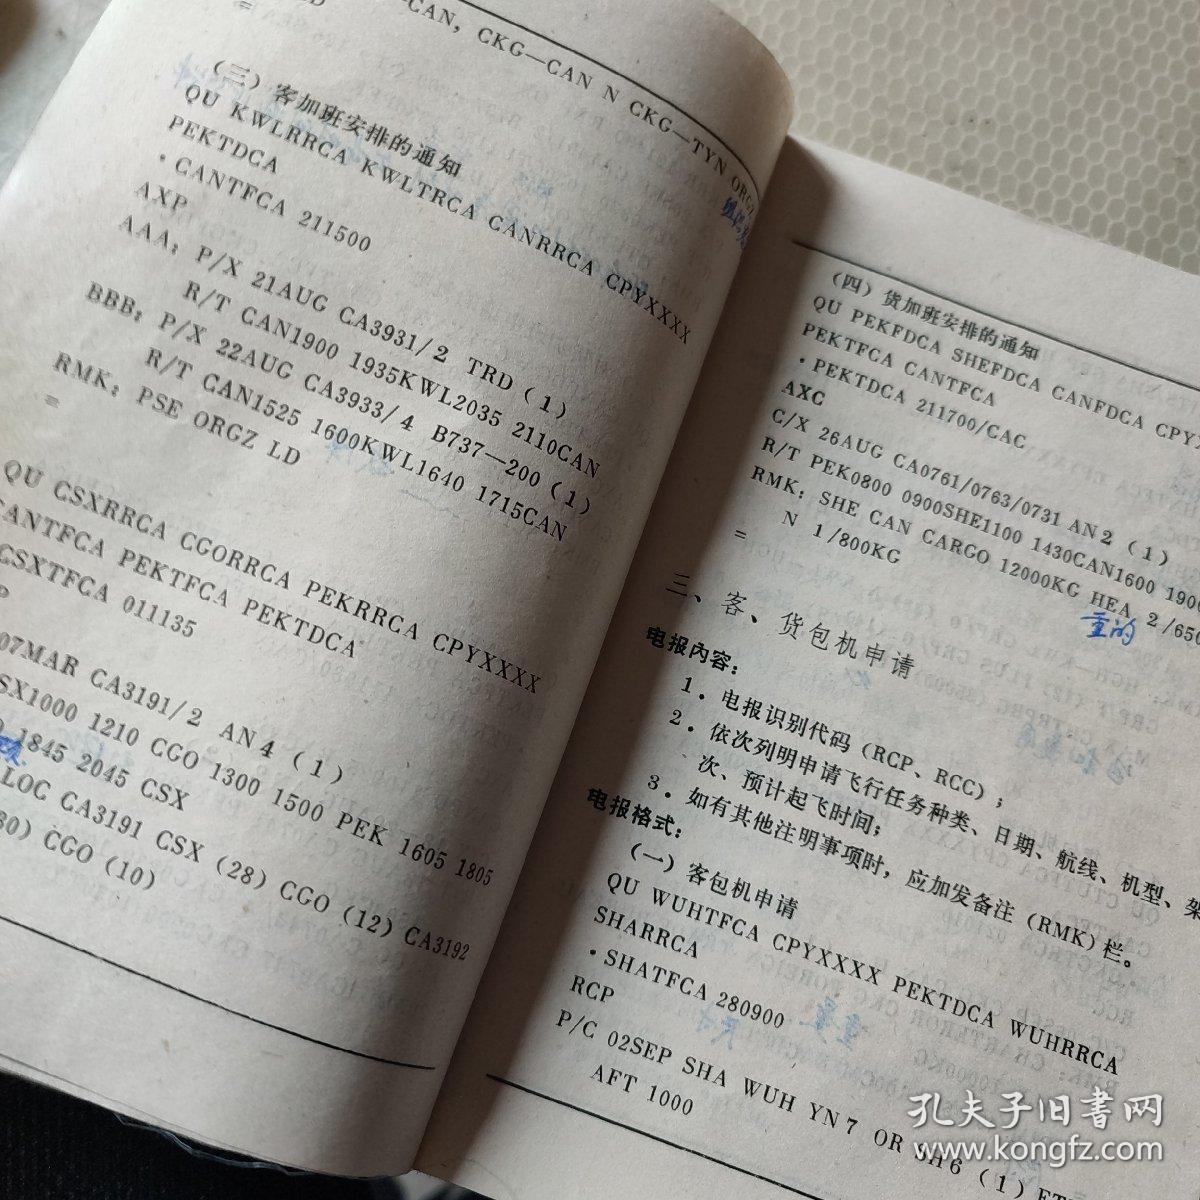 CAN, CKG—CAN N CKG—TYN ORGZ
LD
=
(三)客加班安排的通知
QU KWLRRCA KWLTRCA CANRRCA CPYXXXX
PEKTDCA
·CANTFCA 211500
AXP
AAA: P/X 21AUG CA3931/2 TRD(1)
R/T CAN1900 1935KWL2035 2110CAN
BBB: P/X 22AUG CA3933/4 B737—200(1)
R/T CAN1525 1600KWL1640 1715CAN
RMK: PSE ORGZ LD
=
QU CSXRRCA CGORRCA PEKRRCA CPYXXXX
CANTFCA PEKTFCA PEKTDCA
CSXTFCA 011135
P
07MAR CA3191/2 AN4(1)
SX1000 1210 CGO 1300 1500 PEK 1605 1805
1845 2045 CSX
LOC CA3191 CSX(28)CGO(12)CA3192
30)CGO(10)
(四)货加班安排的通知
QU PEKFDCA SHEFDCA CANFDCA CPYX
PEKTFCA CANTFCA
·PEKTDCA 211700/CAC
AXC
C/X 26AUG CA0761/0763/0731 AN2(1)
R/T PEK0800 0900SHE1100 1430CAN1600 1900
RMK: SHE CAN CARGO 12000KG HEA 2/650
N 1/800KG
=
重的
三、客、货包机申请
电报内容:
1.电报识别代码(RCP、RCC);
2.依次列明申请飞行任务种类、日期、航线、机型、架
次、预计起飞时间;
3.如有其他注明事项时,应加发备注(RMK)栏。
电报格式:
(一)客包机申请
QU WUHTFCA CPYXXXX PEKTDCA WUHRRCA
SHARRCA
·SHATFCA 280900
RCP
P/C 02SEP SHA WUH YN7 OR SH6(1)ET
AFT 1000
孔夫子旧书网
www.kongfz.com